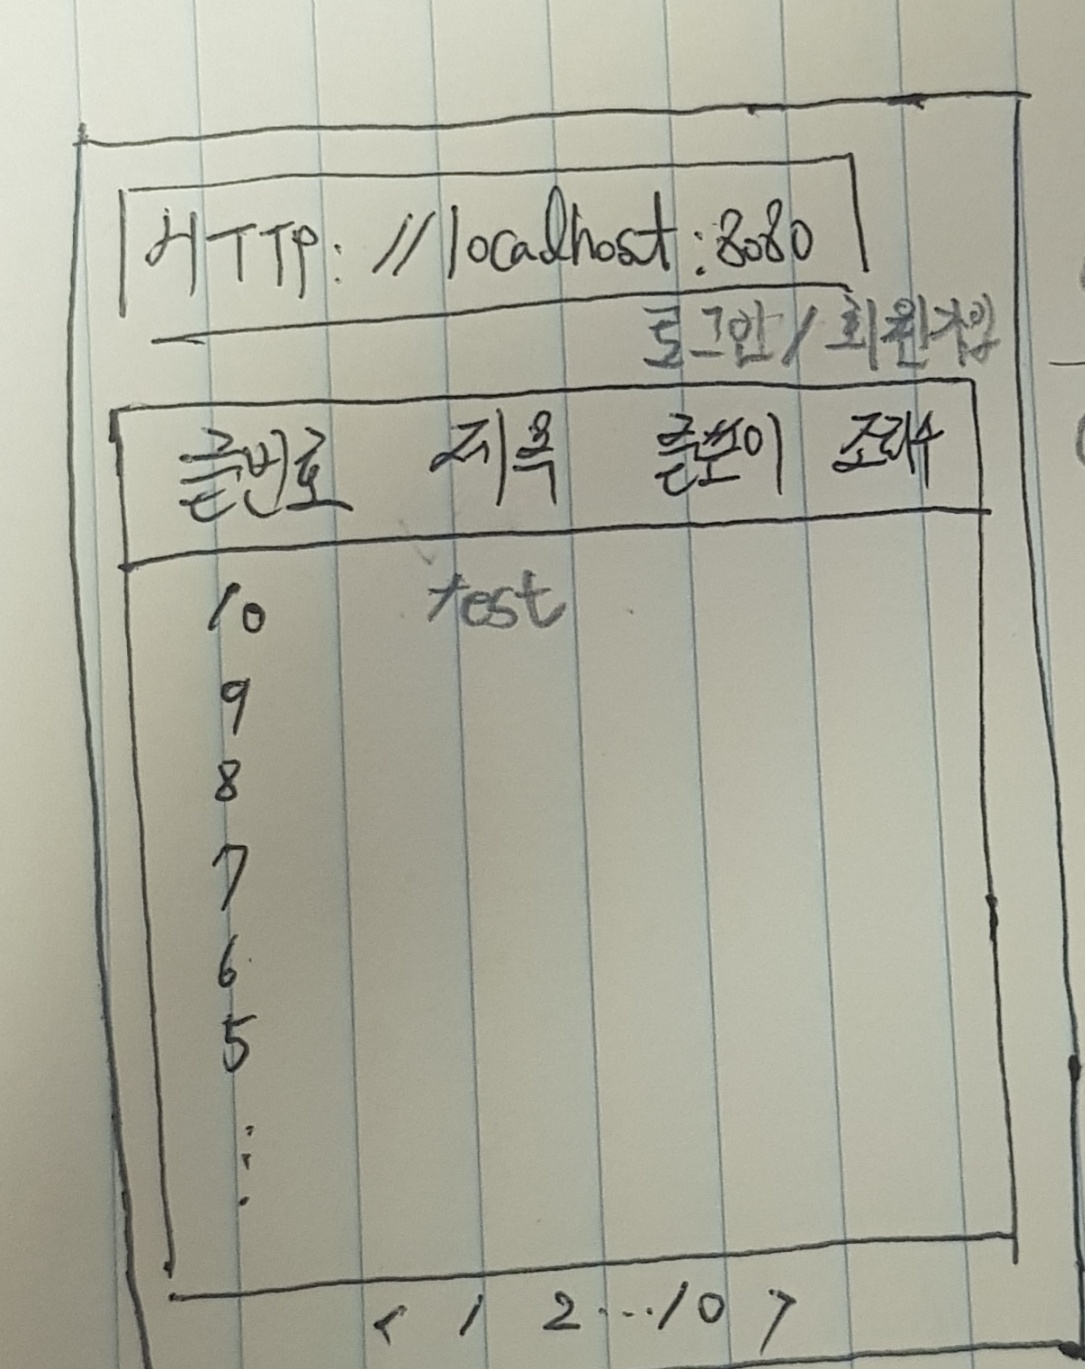 HTTP://localhost:8080
로그인/회원가입
글번호 제목 글쓴이 조회수
10 test
9
8
7
6
5
⋮
< 1 2 ... 10 >